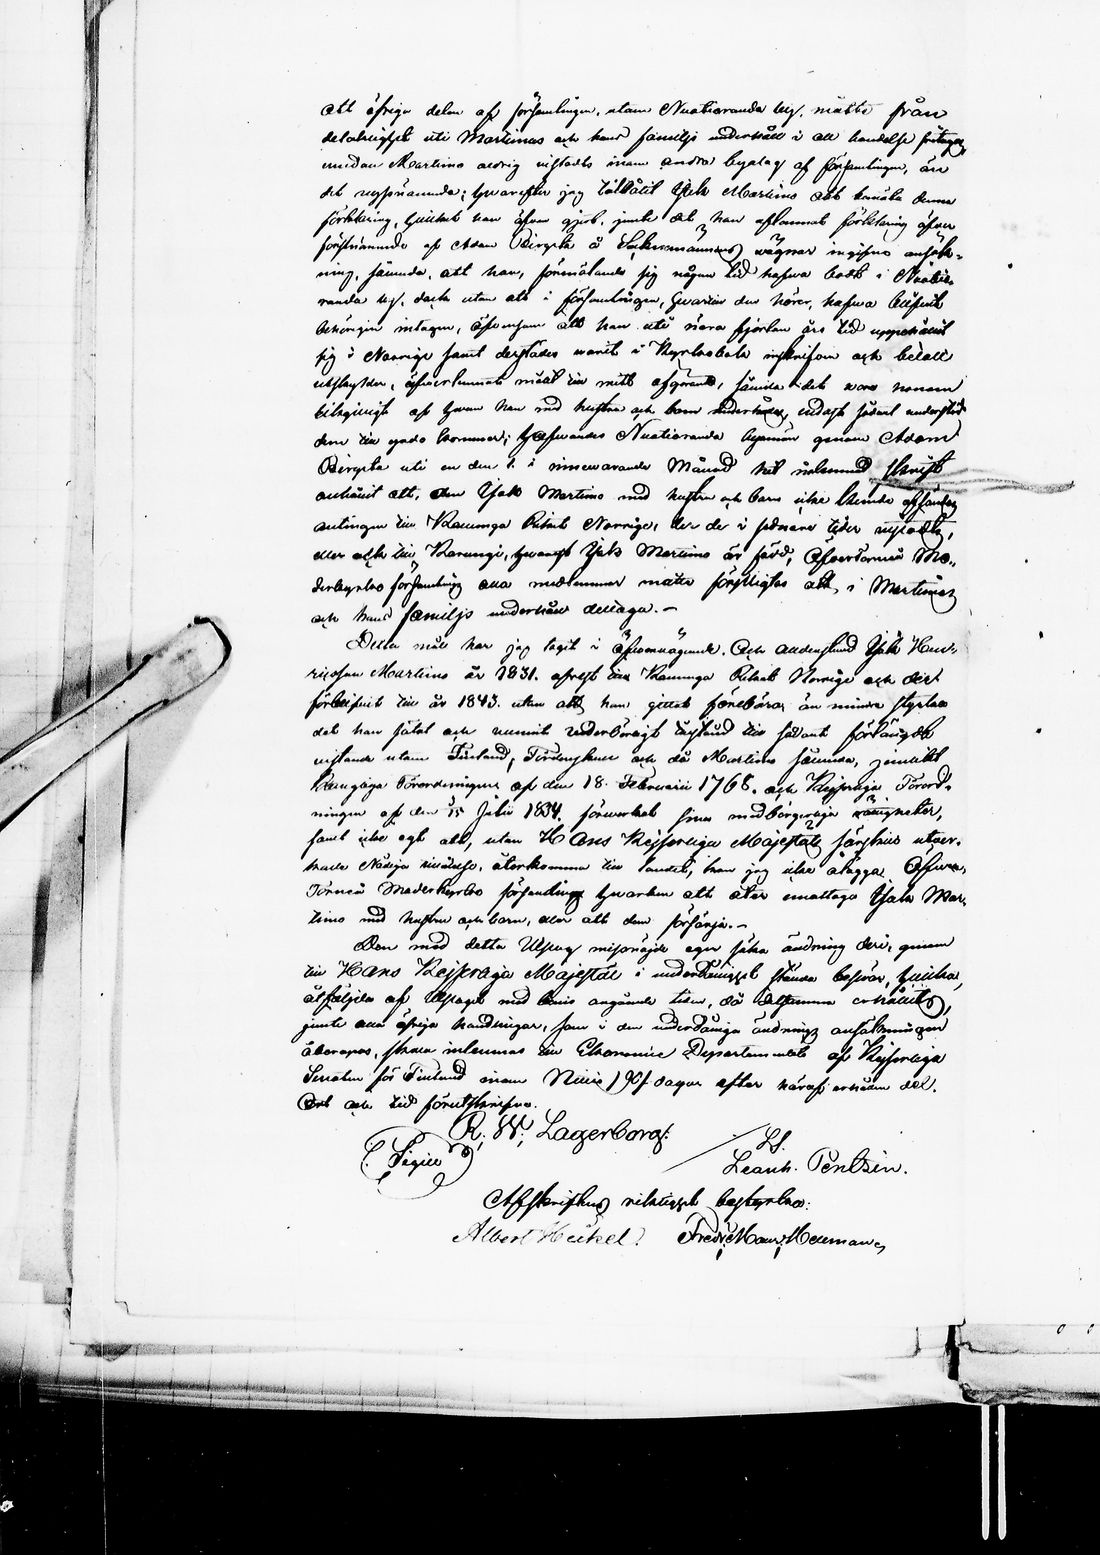 att öfriga delen af församlingen, utom Nuotioranda by, måtte från
delaktighet uti Martimos och hans familjs underhåll i all händelse fritagas,
emedan Martimo aldrig vistats inom andra byalag af församlingen, än
det nyssnämnda; hvarefter jag tillåtit Isak Martimo att bemöta denna
förklaring, hvilket han äfven gjort, jemte det han aflemnat förklaring öfver
förstnämnde af Adam Pirgeta å Sockenmännens vägnar ingifne ansök-
ning, sägande, att han, förmälande sig någon tid hafva bott i Nuotio-
randa by, dock utan att i församlingen, hvartill den hörer, hafva blifvit
behörigen intagen, äfvensom att han uti nära fjorton års tid uppehållit
sig i Norrige samt derstädes varit i Kyrkobok inskrifven och betalt
utskylder, öfverlemnat målet till mitt afgörande, sägande det vara honom
likgiltigt af hvem han med hustru och barn underhålles, endast sådant understöd
dem till godo kommer; hvarjemte Nuotioranda byemän genom Adam
Pirgeta uti en den 1. i innevarande Månad hit inlemnad skrift
anhållit att, om Isak Martimo med hustru och barn icke skulle afsändas
antingen till Konunga Riket Norrige, der de i sednare tider vistats,
eller ock till Karungi, hvarest Isak Martimo är född, Öfvertorneå Mo-
derkyrko församling alla medlemmar måtte förpligtas att i Martimos
och hans familjs underhåll deltaga. –
Detta mål har jag tagit i öfvervägande. Och alldenstund Isak Hen-
riksson Martimo år 1831. afrest till Konunga Riket Norrige och der
förblifvit till år 1843. utan att han gittat förebära än mindre styrka
det han sökt och vunnit vederbörligt tillstånd till sådant förlängdt
vistande utom Finland, Fördenskull och då Martimo sålunda, jemlikt
Kongliga Förordningen af den 18. Februarii 1768. och Kejserliga Förord-
ningen af den 15 Julii 1834. förverkat sina medborgerliga rättigheter,
samt icke egt att, utan Hans Kejserliga Majestäts särskilt utver-
kade Nådiga tillåtelse, återkomma till landet, kan jag icke ålägga Öfver-
Torneå Moderkyrko församling hvarken att åter emottaga Isak Mar-
timo med hustru och barn, eller att dem försörja. –
Den med detta Utslag missnöjde eger söka ändring deri, genom
till Hans Kejserliga Majestät i underdånighet ställda besvär, hvilka,
åtföljde af Utslaget med bevis angående tiden, då detsamma erhållits,
jemte alla öfriga handlingar, som i den underdåniga ändrings ansökningen
åberopas, skola inlemnas till Ekonomie Departementet af Kejserliga
Senaten för Finland inom Nittio /:90:/ dagar efter häraf erhållen del.
Ort och tid förutskrifne.
R: W: Lagerborg.
(Sigill)
LS.
Leonh. Pentzin.
Afskriftens riktighet bestyrka:
Albert Heikel. Fredr: Maur: Neuman